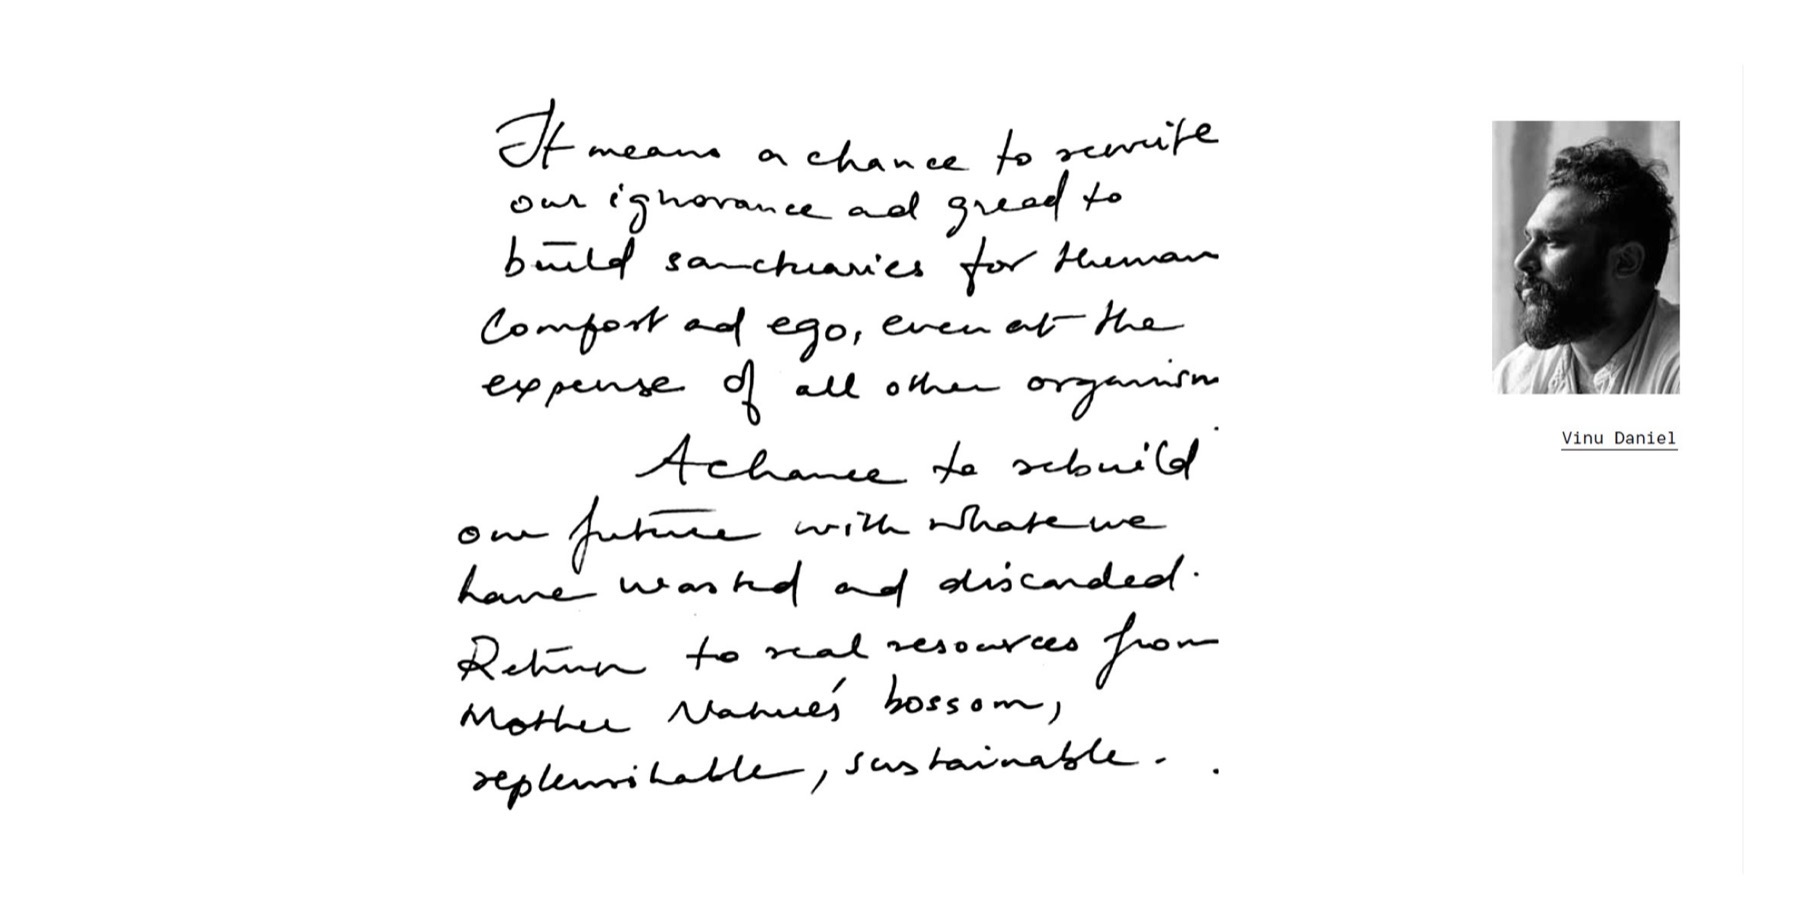 It means a chance to rewrite
our ignorance ad greed to
build sanctuaries for human
Comfort ad ego, even at the
expense of all other organism
A chance to rebuild
our future with what we
have wasted and discarded.
Return to real resources from
Mother Nature's bossom,
replenishable, sustainable.
Vinu Daniel